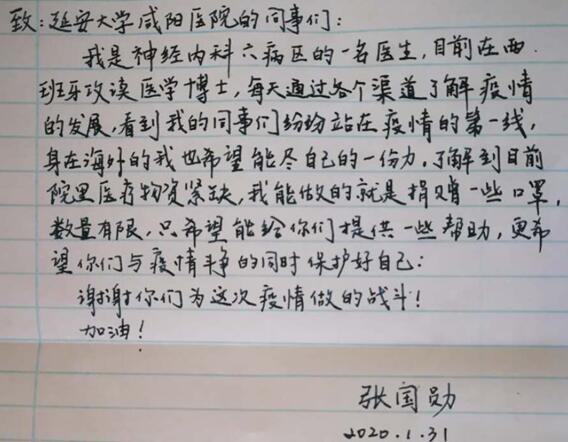 致:延安大学咸阳医院的同事们:
我是神经内科六病区的一名医生,目前在西
班牙攻读医学博士,每天通过各个渠道了解疫情
的发展,看到我的同事们纷纷站在疫情的第一线,
身在海外的我也希望能尽自己的一份力,了解到目前
院里医疗物资紧缺,我能做的就是捐赠一些口罩,
数量有限,只希望能给你们提供一些帮助,更希
望你们与疫情斗争的同时保护好自己:
谢谢你们为这次疫情做的战斗!
加油!
张国勋
2020.1.31